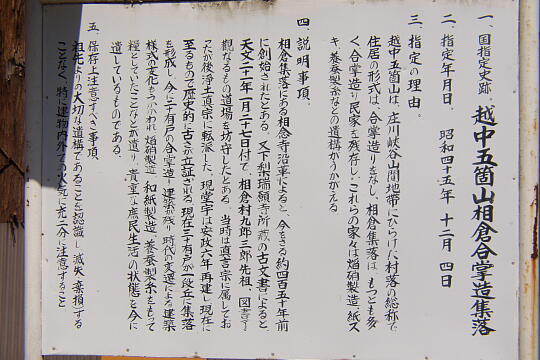 一、国指定史跡、越中五箇山相倉合掌造集落
二、指定年月日、 昭和四十五年 十二月 四日
三、指定の理由。
越中五箇山は、庄川峡谷山間地帯にひらけた村落の総称で
住居の形式は、合掌造りをなし、相倉集落は、もっとも多
く合掌造り民家を残存し、これらの家々は焔硝製造、紙ス
キ、養蚕製糸などの遺構がうかがえる。
四、説明事項、
相倉集落にある相念寺沿革によると、今をさる約四百五十年前
に創始されたとある。又下梨瑞願寺所蔵の古文書によると
天文二十一年十月二十七日付で、相倉村九郎三郎先祖、図書了
観なるもの道場を坊守したとある。当時は真言宗に属してお
ったが後浄土真宗に転派した。現堂宇は安政六年再建し現在に
至るもので歴史的に古さが立証される。現在二十有戸が一段丘に集落
を形成し、今二十有戸の合掌造り建築が残り時代の変遷による建築
様式の変化もうかがわれ焔硝製造、和紙製造、養蚕製糸をもって
糧としていたことなどが遺り、貴重な庶民生活の状態を今に
遺しているものである。
五、保存上注意すべき事項、
祖先よりの大切な遺構であることを認識し、滅失、棄損する
ことなく、特に建物内外での火気に充二分に注意すること